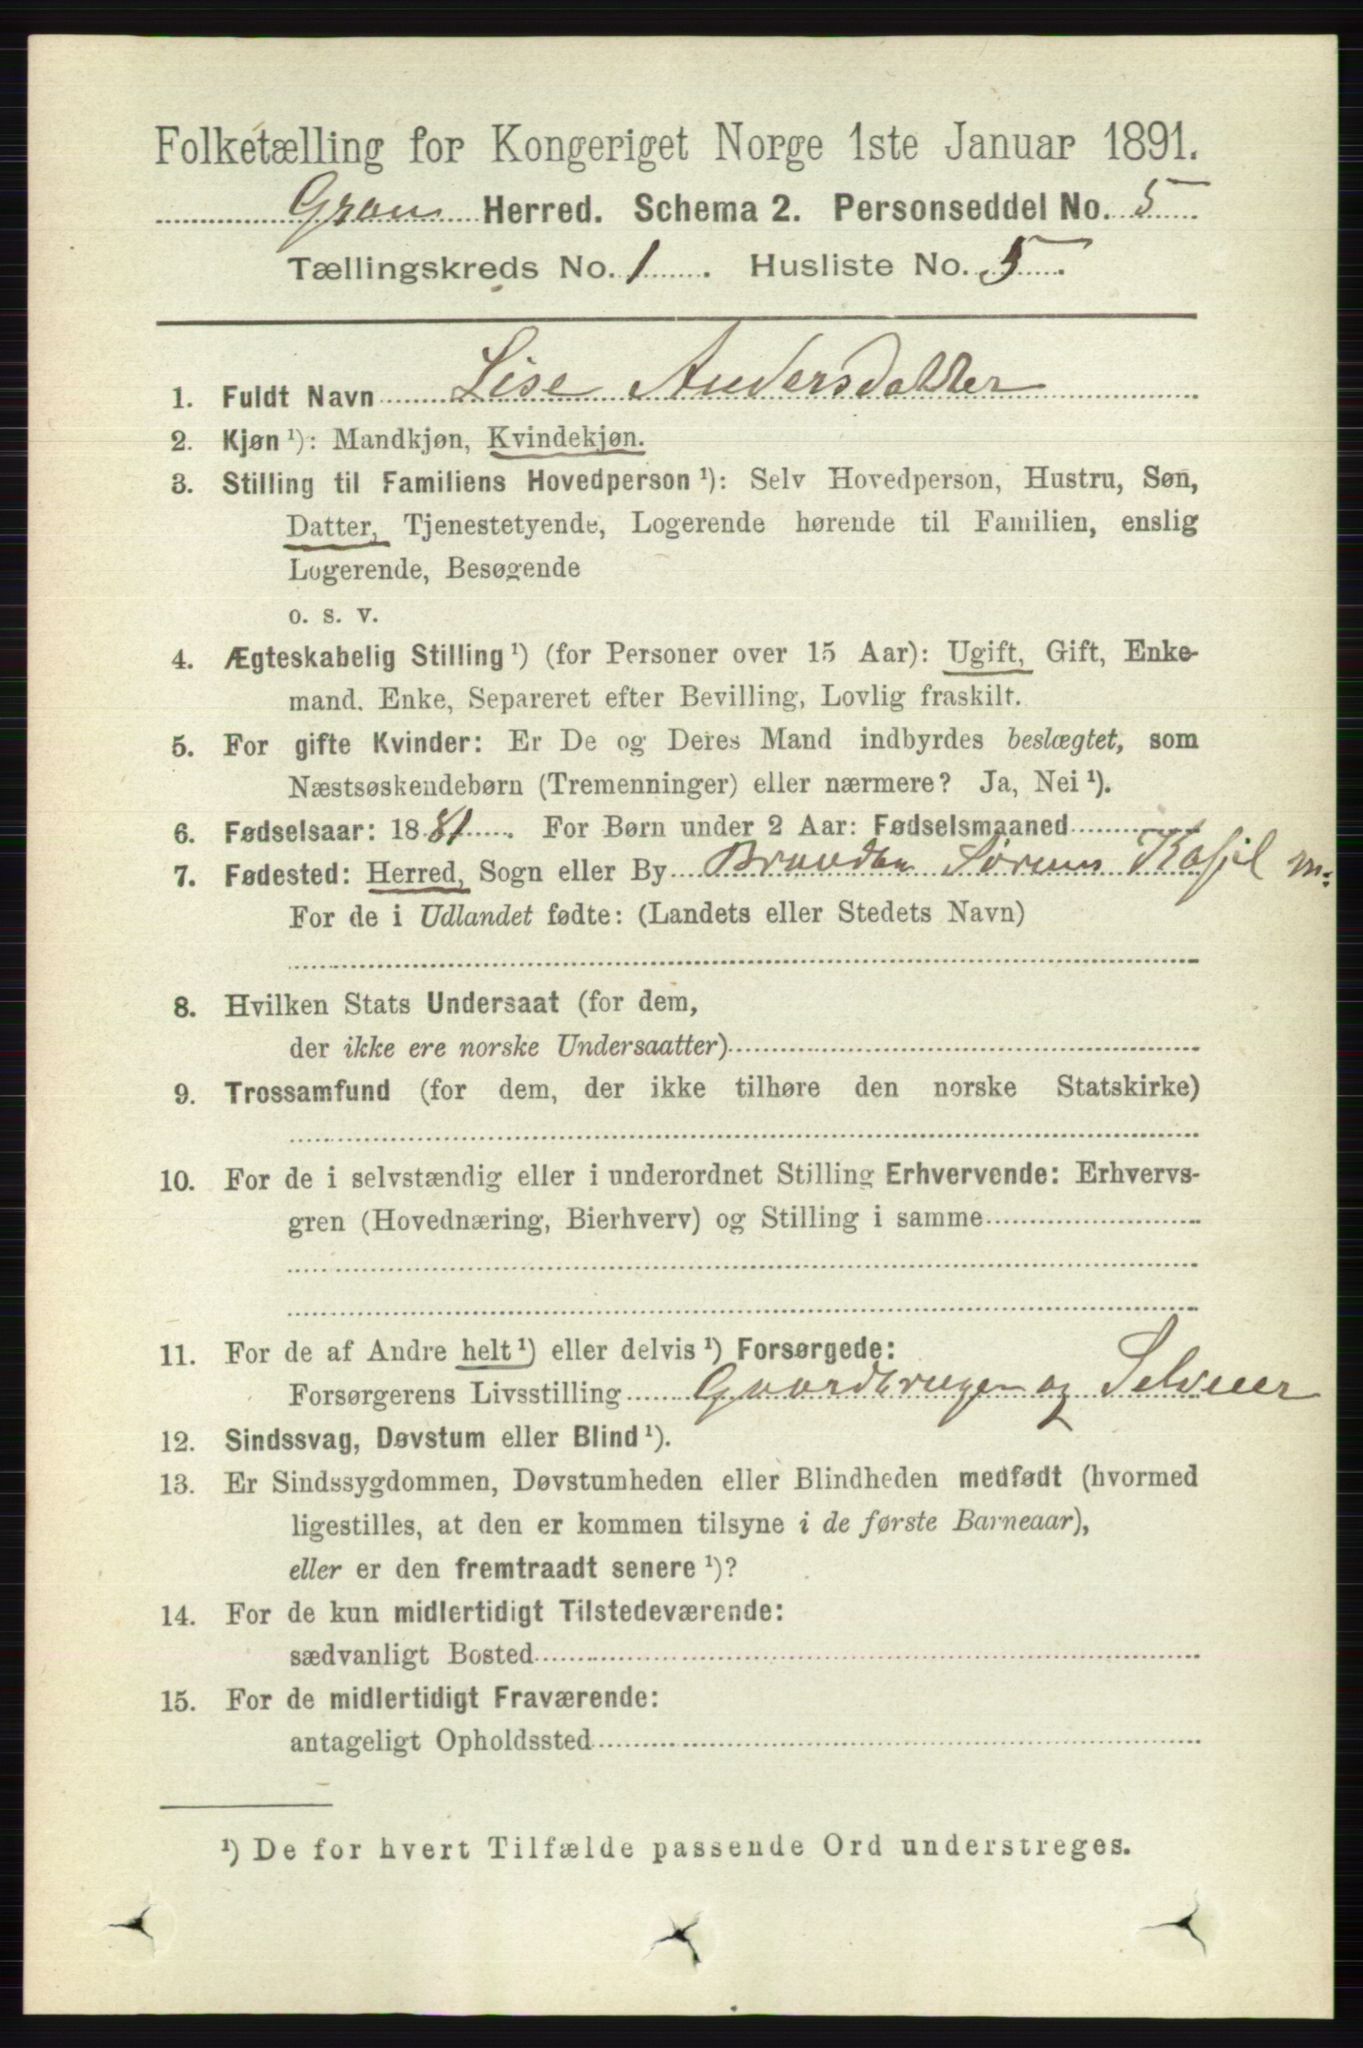 Folketælling for Kongeriget Norge 1ste Januar 1891.
Gran Herred. Schema 2. Personseddel No. 5
Tællingskreds No. 1 . Husliste No. 5 .
1. Fuldt Navn Lise Andersdatter
2. Kjøn ¹): Mandkjøn, Kvindekjøn.
3. Stilling til Familiens Hovedperson ¹): Selv Hovedperson, Hustru, Søn,
Datter, Tjenestetyende, Logerende hørende til Familien, enslig
Logerende, Besøgende
o. s. v.
4. Ægteskabelig Stilling ¹) (for Personer over 15 Aar): Ugift, Gift, Enke-
mand. Enke, Separeret efter Bevilling, Lovlig fraskilt.
5. For gifte Kvinder: Er De og Deres Mand indbyrdes beslægtet, som
Næstsøskendebørn (Tremenninger) eller nærmere? Ja, Nei ¹).
6. Fødselsaar: 1881 . For Børn under 2 Aar: Fødselsmaaned
7. Fødested: Herred, Sogn eller By Brandbu
For de i Udlandet fødte: (Landets eller Stedets Navn)
8. Hvilken Stats Undersaat (for dem,
der ikke ere norske Undersaatter)
9. Trossamfund (for dem, der ikke tilhøre den norske Statskirke)
10. For de i selvstændig eller i underordnet Stilling Erhvervende: Erhvervs-
gren (Hovednæring, Bierhverv) og Stilling i samme
11. For de af Andre helt ¹) eller delvis ¹) Forsørgede:
Forsørgerens Livsstilling Gaardbruger og Selveier
12. Sindssvag, Døvstum eller Blind ¹).
13. Er Sindssygdommen, Døvstumheden eller Blindheden medfødt (hvormed
ligestilles, at den er kommen tilsyne i de første Barneaar),
eller er den fremtraadt senere ¹)?
14. For de kun midlertidigt Tilstedeværende:
sædvanligt Bosted
15. For de midlertidigt Fraværende:
antageligt Opholdssted
¹) De for hvert Tilfælde passende Ord understreges.